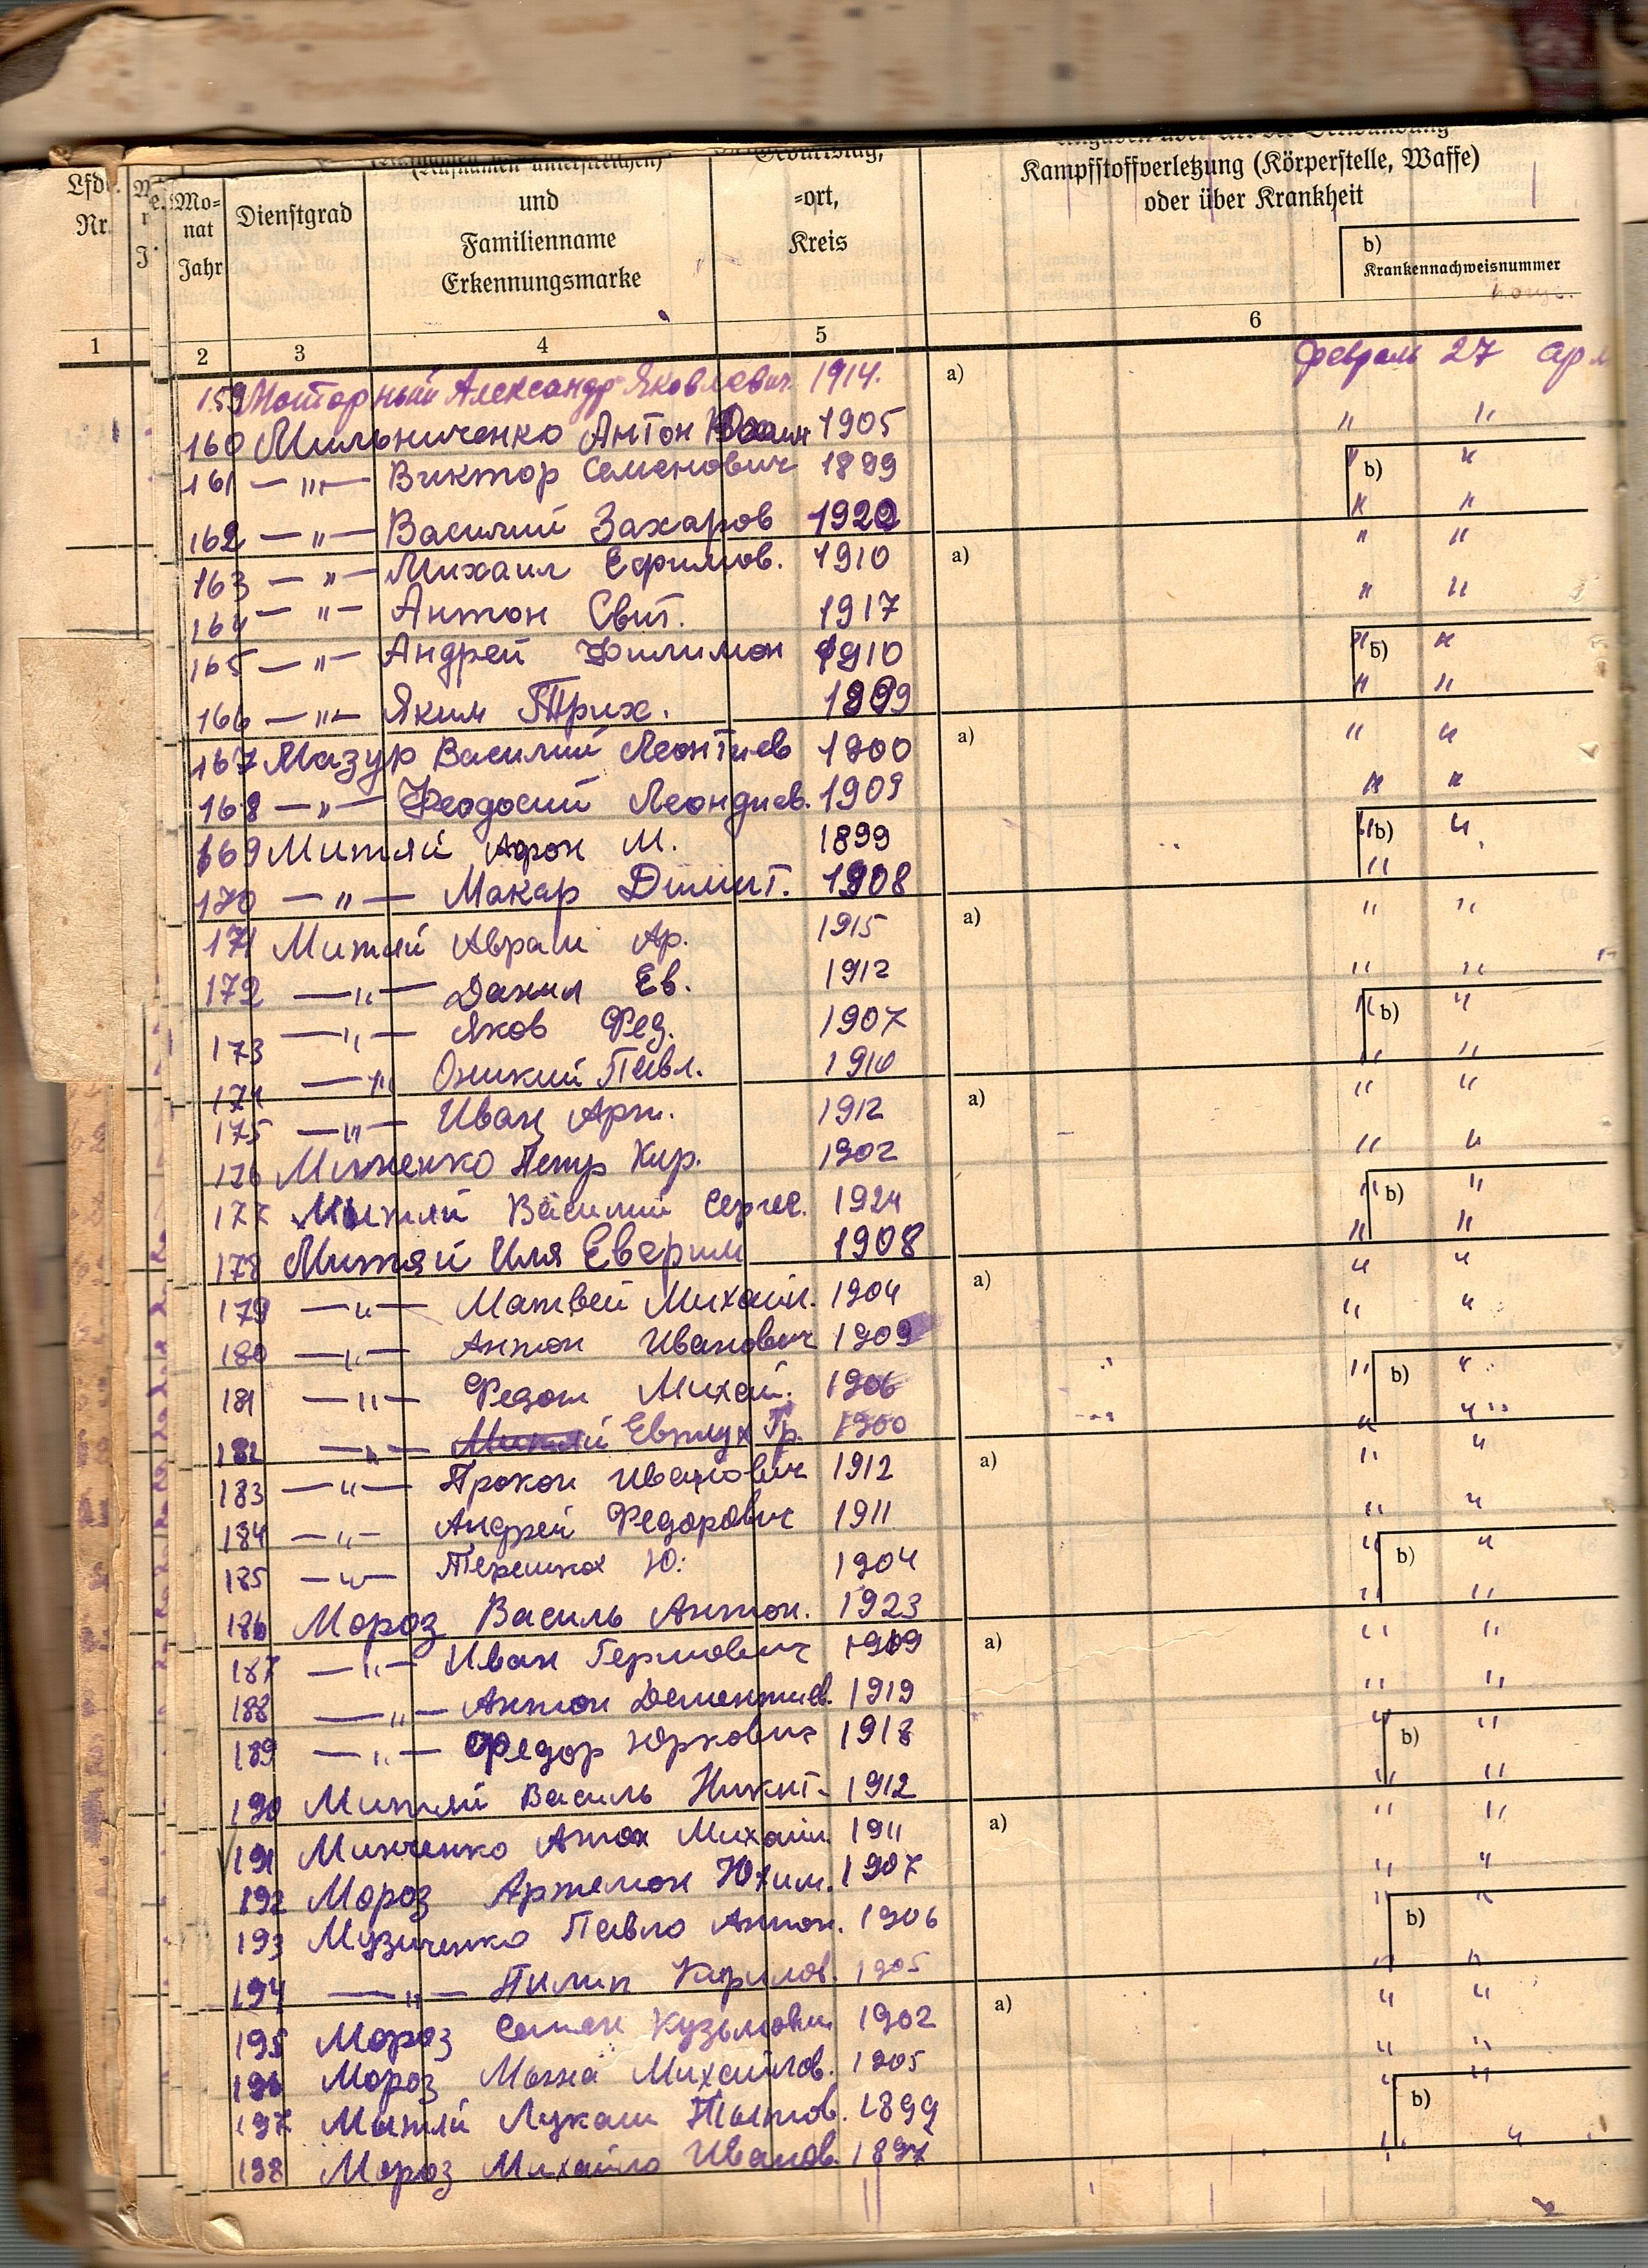 Lfd.
Nr.
Mo-
nat
Jahr
Dienstgrad
und
Familienname
Erkennungsmarke
-ort,
Kreis
Kampfstoffverletzung (Körperstelle, Waffe)
oder über Krankheit
b)
Krankennachweisnummer
1 2 3 4 5 6
159 Моторный Александр Яковлевич 1914. a) февраль 27
160 Мильниченко Антон 1905 " "
161 — " — Виктор Семенович 1899 " b) "
162 — " — Василий Захаров 1920 " "
163 — " — Михаил Ефимов. 1910 a) " "
164 — " — Антон Свит. 1917 " "
165 — " — Андрей Филимон 1910 " b) "
166 — " — Яким Трих. 1899 " "
167 Мазур Василий Леонтиев 1900 a) " "
168 — " — Феодосий Леондиев. 1909 " "
169 Митяй Афон М. 1899 " b) "
170 — " — Макар Дмит. 1908 "
171 Митяй Аврам Ар. 1915 a) " "
172 — " — Данил Ев. 1912 " "
173 — " — Яков Фед. 1907 " b) "
174 — " — Оникий Павл. 1910 " "
175 — " — Иван Арт. 1912 a) " "
176 Петр Кир. 1902 " "
177 Митяй Василий Сергее. 1924 " b) "
178 Митяй Иля 1908 " "
179 — " — Матвей Михайл. 1904 a) " "
180 — " — Антон Иванович 1909 " "
181 — " — Федот Михай. 1906 " b) "
182 — " — Митяй Евтух Гр. 1900 " "
183 — " — Прокоп Иванович 1912 a) " "
184 — " — Андрей Федорович 1911 " "
185 — " — Ю. 1904 " b) "
186 Мороз Василь Антон. 1923 " "
187 — " — Иван 1909 a) " "
188 — " — Антон Дементиев. 1919 " "
189 — " — Федор Юркович 1918 " b) "
190 Митяй Василь Никит. 1912 " "
191 Минченко Михайл. 1911 a) " "
192 Мороз Артемон Юхим. 1907 " "
193 Музиченко Павло Антон. 1906 " b) "
194 — " — Пилип Кирилов. 1905 " "
195 Мороз Семен Кузьмович 1902 a) " "
196 Мороз Михайлов. 1905 " "
197 Мытяй Лукаш 1899 " b) "
198 Мороз Михайло Иванов. 1897 "